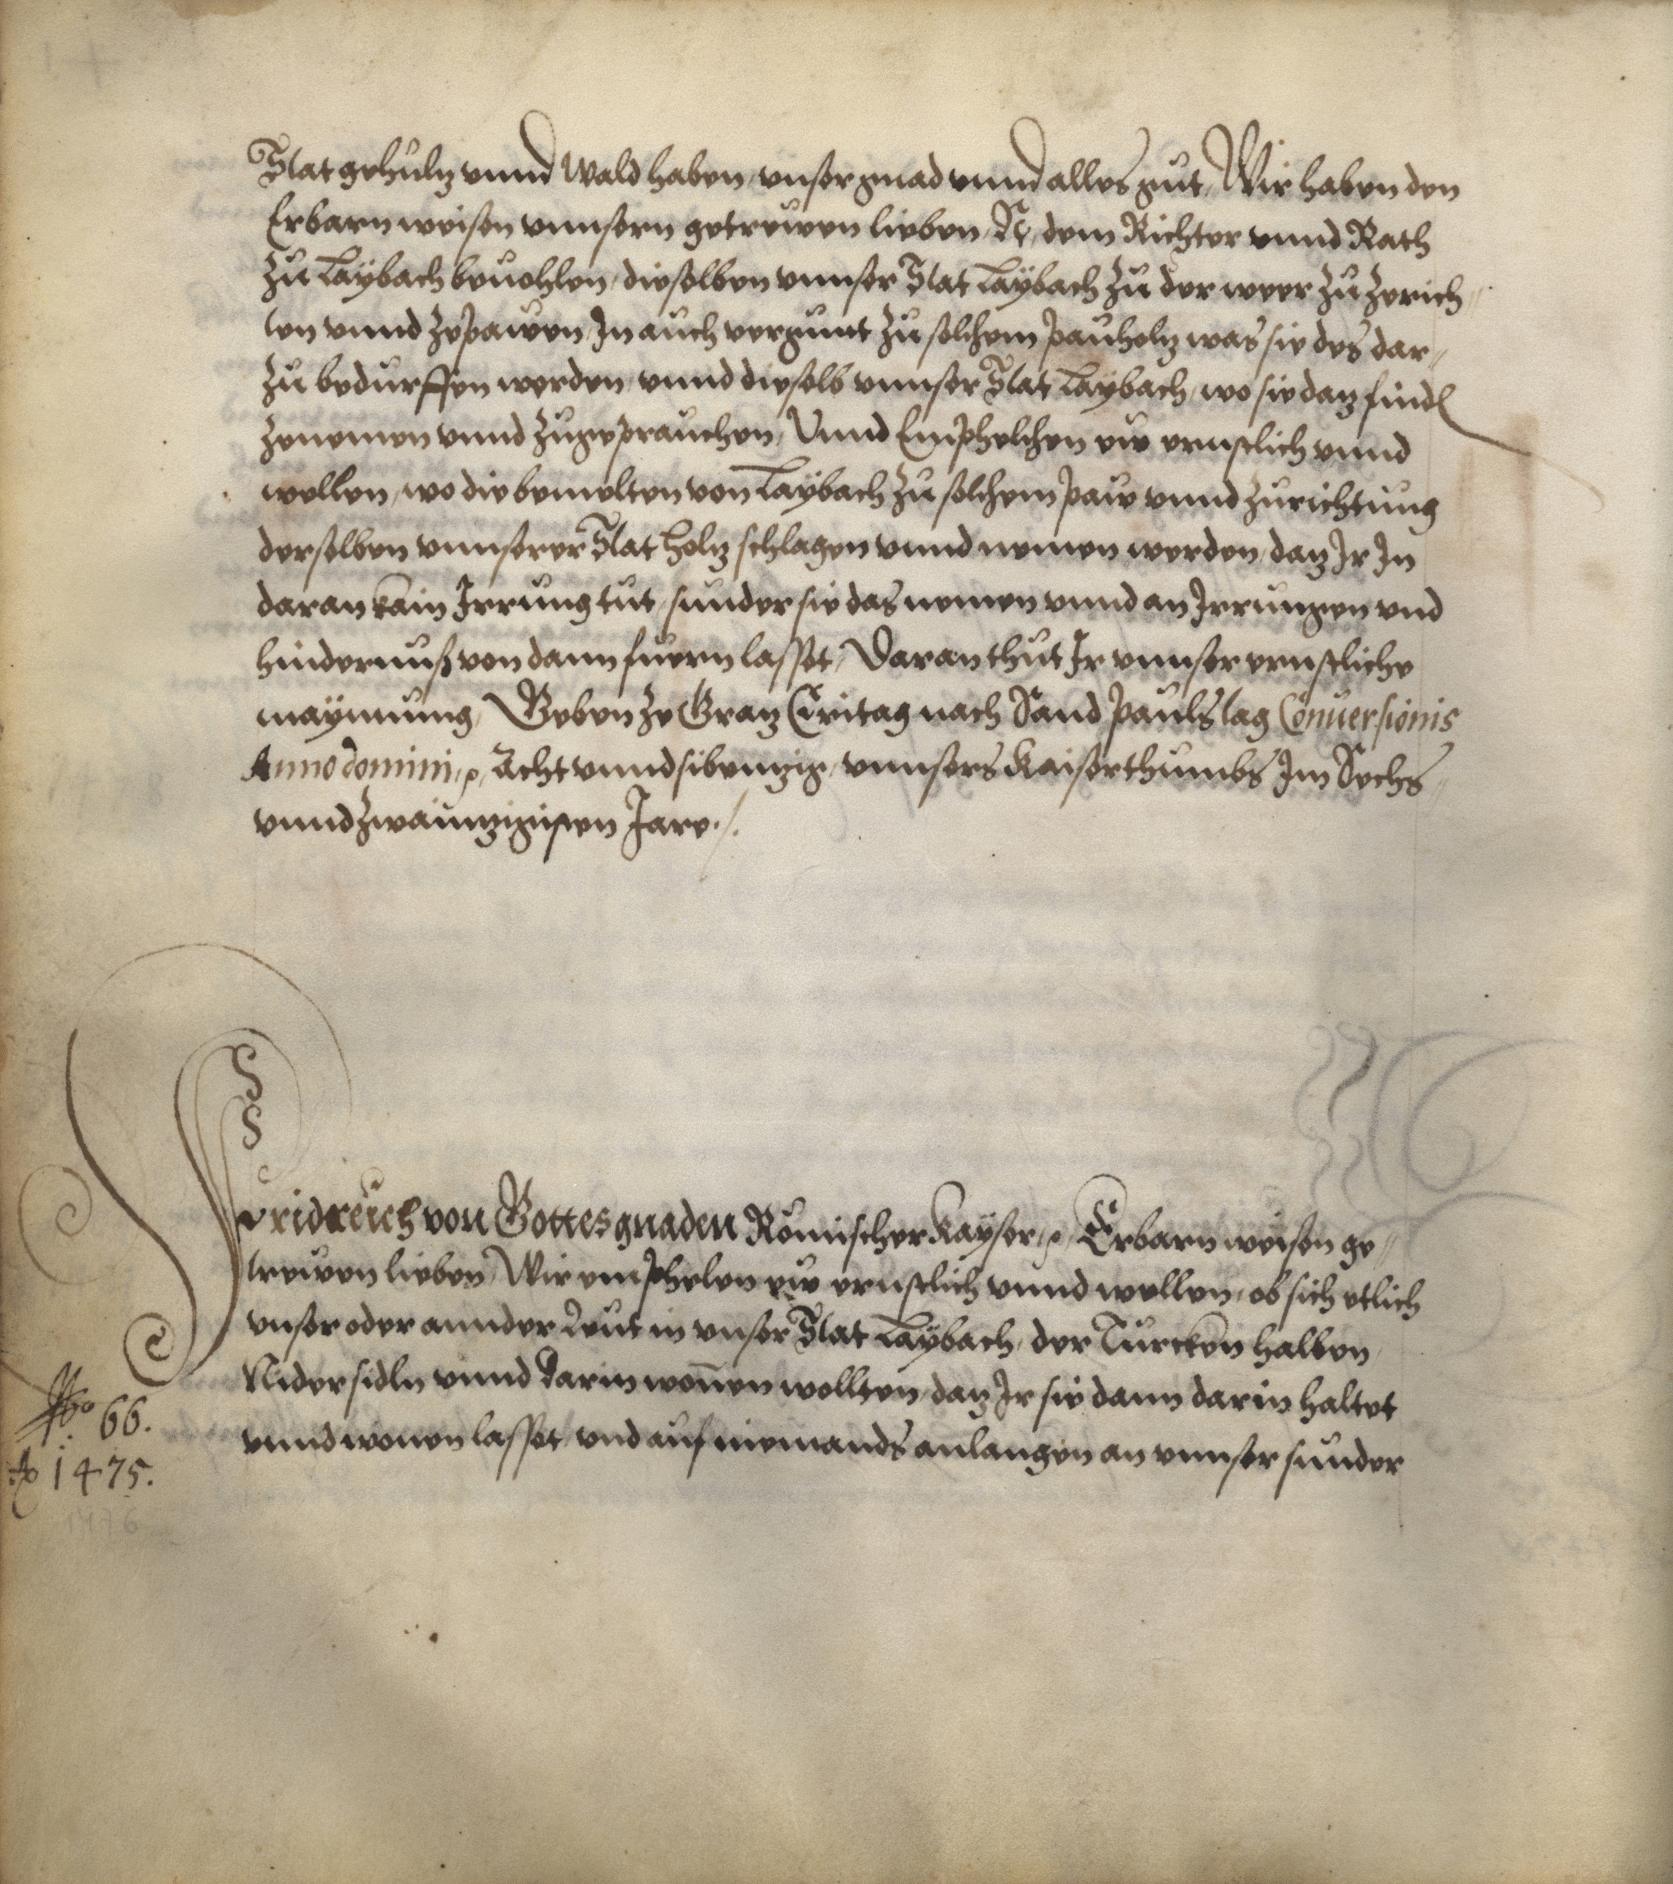 Stat gehultz vnnd Wald haben, vnser gnad vnnd alles gut, Wir haben den
Erbarn weisen vnnsern getrewen lieben, N, dem Richter vnnd Rath
zu Laÿbach beuohlen, dieselben vnnser Stat Laÿbach zu der weer zu zerich-
ten vnnd zepawen, In auch vergunt zu solchem pauholtz was sie des dar-
zu bedurffen werden, vnnd dieselb vnnser Stat Laÿbach, wo sie datz find
zenemen vnnd zugeprauchen, Vnnd Emphelchen ew ernstlich vnnd
wellen, wo die bemelten von Laÿbach zu solchem paw vnnd zurichtung
derselben vnnserer Stat holtz schlagen vnnd nemen werden, datz Ir In
daran kain Irrung tut, sunder sie das nemen vnnd an Irrungen vnd
hindernuß von dann fuern lasset, Daran thut Ir vnnser ernstliche
maÿnnung, Geben ze Gratz Eritag nach Sand Pauls tag Conuersionis
Anno domini, Acht vnnd sibentzig, vnnsers Kaiserthumbs Im Sechs-
vnnd zwaintzigisten Jare./.
Fridreich von Gottes gnaden Römischer Kayser, Erbarn weisen ge-
trewen lieben, Wir emphelen ew ernstlich vnnd wellen, ob sich etlich
vnser oder annder Leut in vnser Stat Laÿbach, der Türcken halben
Nidersidln vnnd darin wonen wollten, datz Ir sie dann darin haltet
vnnd wonen lasset, vnd auf niemands anlangen an vnnser sunder
No 66.
Ao 1475.
1476